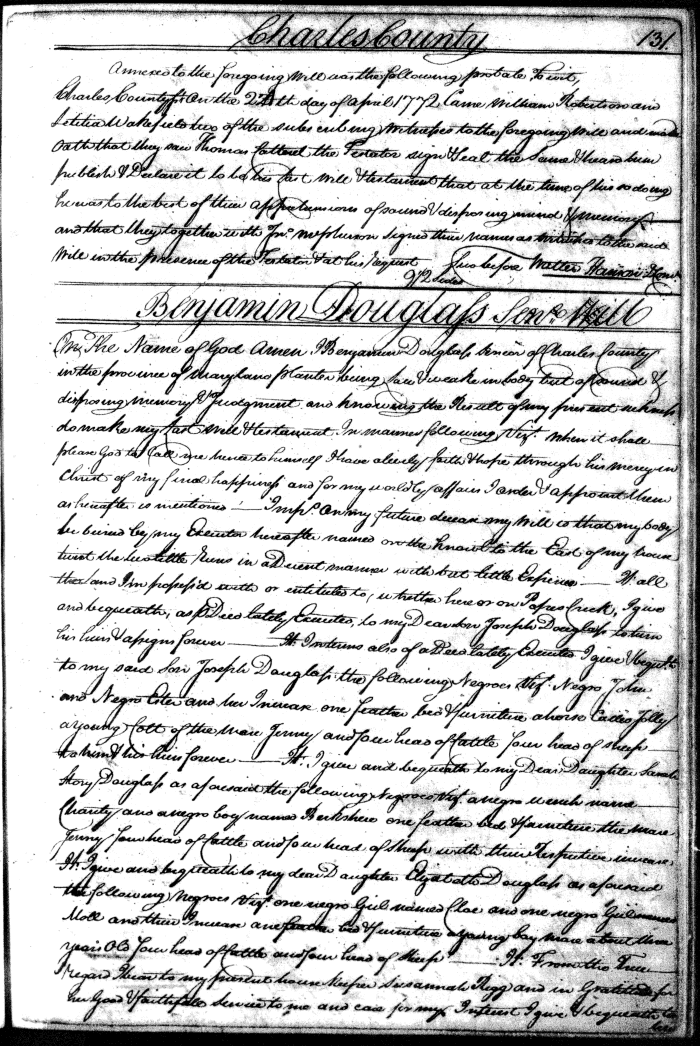 Charles County 131
Annexed to the foregoing Will was the following probate Towit,
Charles County St. On the 27th day of April 1772 Came William Robertson and
Letitia Wakefield two of the subscribing Witnesses to the foregoing Will and made
Oath that they saw Thomas the Testator sign & Seal the Same & heard him
publish & Declare it to be his last Will & Testament that at the time of his so doing
he was to the best of their apprehensions of sound & disposing mind & memory
and that they together with Jno. McPherson signed their names as Witnesses to the said
Will in the presence of the Testator & at his Request Sworn before Walter Hanson
9/2 sides
Benjamin Douglass Senr. Will
In The Name of God Amen I Benjamin Douglass Senior of Charles County
in the province of Maryland planter being & weake in body but of sound &
disposing memory & Judgment and knowing the Result of my present sickness
do make my last Will & Testament In manner following Vizt. When it shall
please God to Call me hence to himself I have already faith & hope through his mercy in
Christ of my final happiness and for my worldly affairs I order & appoint them
as hereafter is mentioned Imps. On my future decease my Will is that my body
be buried by my Executor hereafter named on the Knowl to the East of my house
twixt the two little Runs in a Decent manner with but little Expence It. all
the land I'm possess'd with or entituled to, whether here or on Popes Creek, I give
and bequeath, as Deed lately Executed, to my Dear son Joseph Douglass to him
his heirs & assigns forever It. In terms also of a Deed lately Executed I give & bequth.
to my said Son Joseph Douglass the following Negroes Vizt. Negro John
and Negro Ester and her Increase one feather bed & furniture a horse Called Jolly
a young Colt of the Mare Jenny and four head of Cattle four head of sheep
to him & his heirs forever It. I give and bequeath to my Dear Daughter Sarah
Story Douglass as aforesaid the following Negroes Vizt. a negro wench name
Charity and a negro boy named Berkshire one feather bed & furniture the mare
Jenny four head of Cattle and four head of Sheep with their Respective increase
It. I give and bequeath to my dear Daughter Elizabeth Douglass as aforesaid
the following Negroes Vizt. one negro Girl named Cloe and one negro Girl named
Moll and their Increase one feather bed & furniture a young bay mare about three
years Old four head of Cattle and four head of sheep It. From the True
regard I bear to my present house keeper Susannah Tigg and in Gratitude for
her Good & faithfull service to me and care for my Interest I give & bequeath to